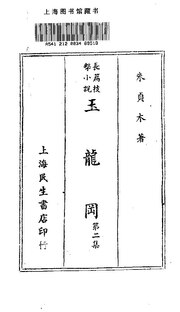 上海图书馆藏书
A541 212
朱貞木著
長篇技
擊小說
玉龍岡
第二集
上海民生書店印行